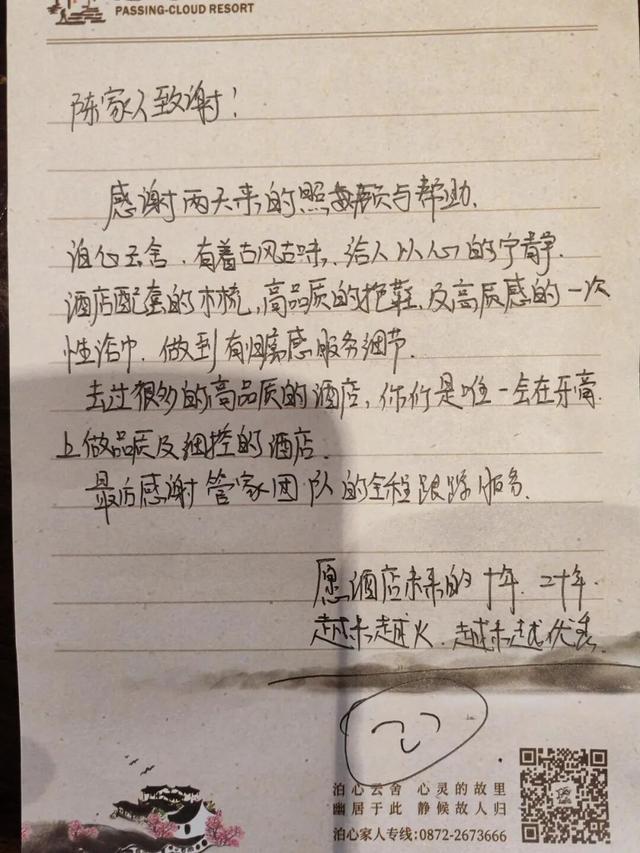 PASSING-CLOUD RESORT
陈家人致谢!
感谢两天来的照顾与帮助.
泊心云舍.有着古风古味,给人以心的宁静.
酒店配套的木梳,高品质的拖鞋,及高质感的一次
性浴巾.做到有归属感服务细节.
去过很多的高品质的酒店,你们是唯一会在牙膏
上做品质及细控的酒店.
最后感谢管家团队的全程跟踪服务.
愿酒店未来的十年.二十年.
越来越火.越来越优秀.
泊心云舍 心灵的故里
幽居于此 静候故人归
泊心家人专线:0872-2673666